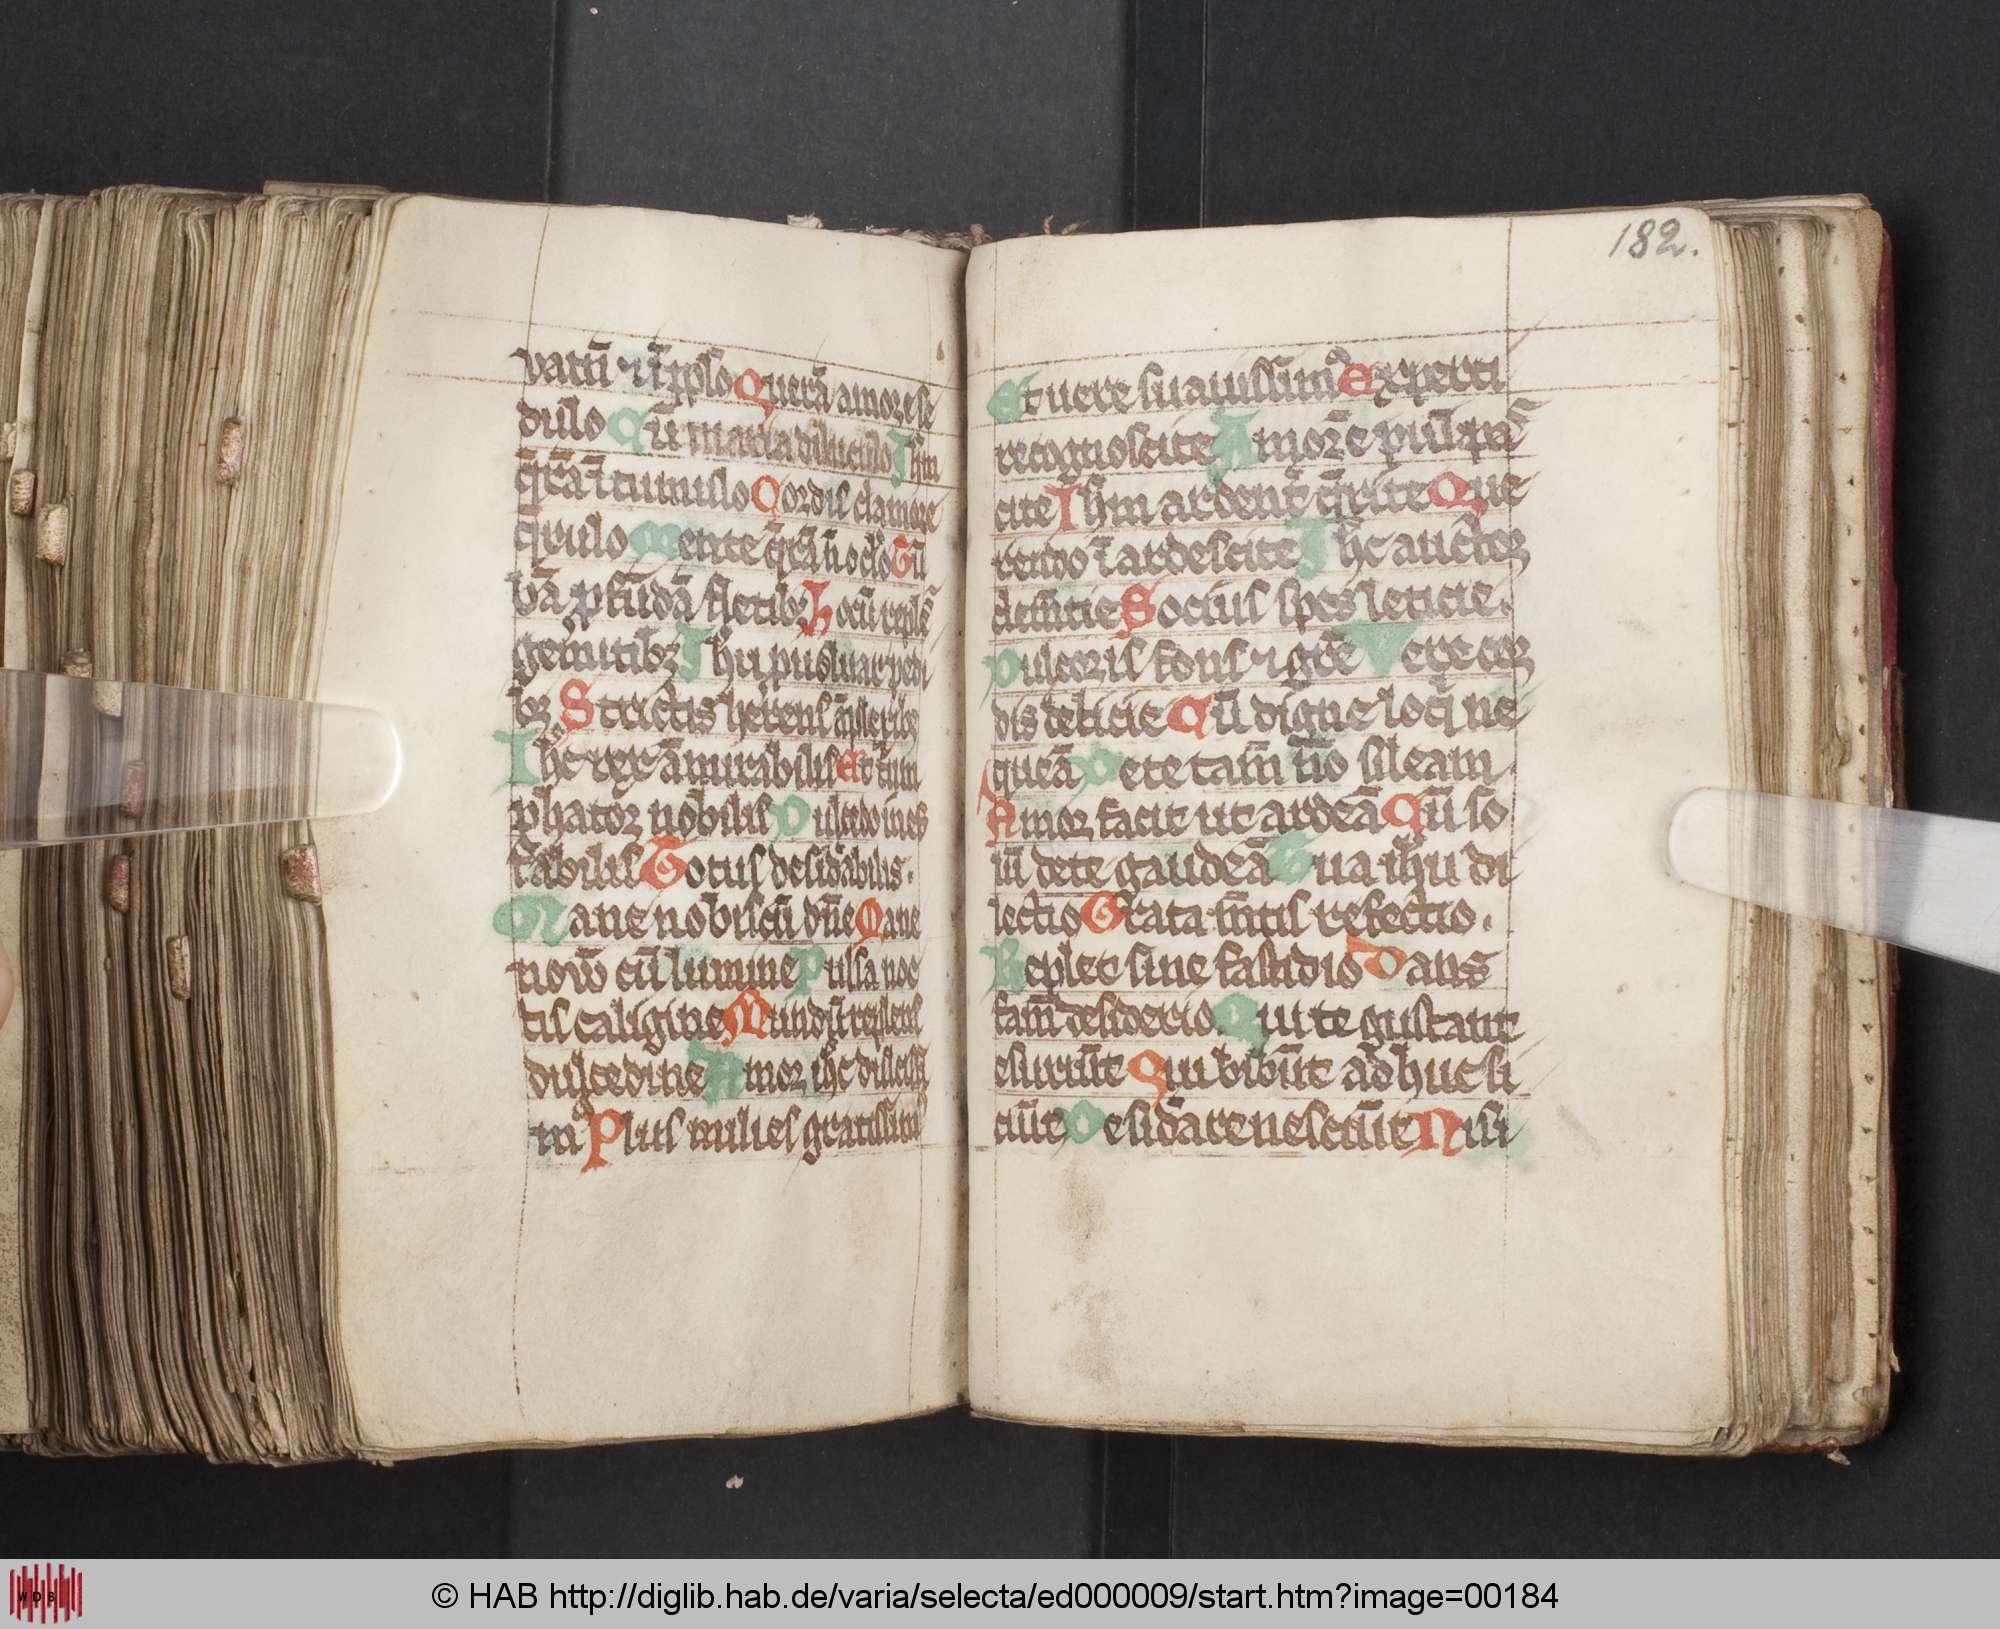 vatū ⁊ ī pp̄lo Querā amore se
dulo Cū maria diluculo Jhm
q̄rā ī tumulo Cordis clamore
q̄rulo Mente q̄rā nō oc̄lo Tū
bā p̄fūdā fletibꝫ Locū repleˢ
gemitibꝫ Jhu ꝓuoluar pedi
bꝫ Strictis herens āplexibꝫ
Jhc rex āmirabilis Et t'ūm
phator nobilis Dulcedo inef
fabilis Totus desid'abilis.
Mane nobiscū dn̄e Mane
nouū cū lumine Pulsa noc
tis caligine Mundū replens
dulcedine Amor ihc dulcissī
mꝰ Plus milies gratissimˢ
Et uere suauissimꝰ Experti
recognoscite Amorē piū pas
cite Jhm ardent' q̄rite Que
rendo īardescite Jhc auctor
clemētie Socius spes leticie.
Dulcoris fons ⁊ grē Vere cor
dis delicie Cū digne loq̄ ne
queā De te tam̄ nō sileam.
Amor facit ut ardeā Cū so
lū de te gaudeā Tua ihu di
lectio Grata mētis refectio.
Replet sine fastidio Dans
fam̄ desiderio Qui te gustant
esuriūt Qui bibūt adhuc si
ciūt Desid'are nesciūt Nisi
182.
WDB
© HAB http://diglib.hab.de/varia/selecta/ed000009/start.htm?image=00184